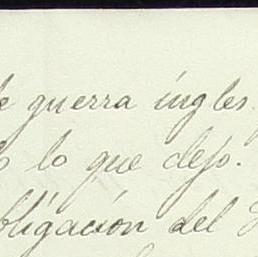 de guerra ingles.
lo que dejo.
obligación del